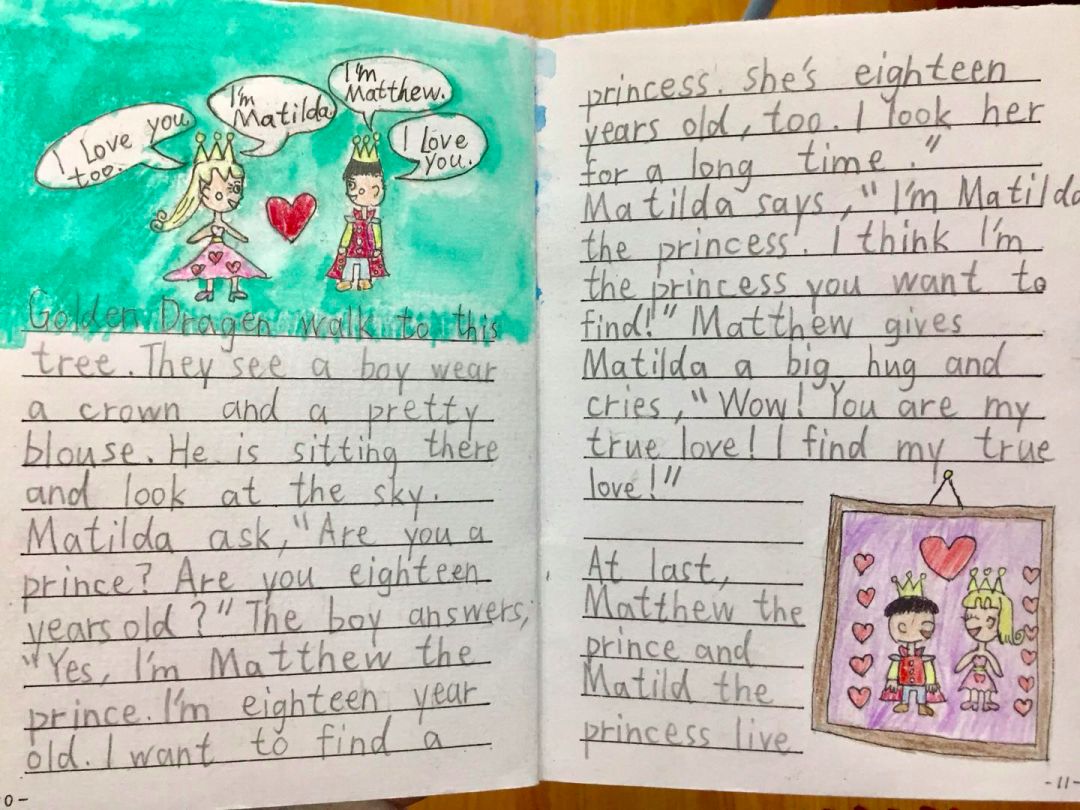 I love you
too.
I'm
Matilda
I'm
Matthew.
I love
you.
Golden Dragen walk to this
tree. They see a boy wear
a crown and a pretty
blouse. He is sitting there
and look at the sky.
Matilda ask, "Are you a
prince? Are you eighteen
years old?" The boy answers,
"Yes, I'm Matthew the
prince. I'm eighteen year
old. I want to find a
princess. she's eighteen
years old, too. I look her
for a long time."
Matilda says, "I'm Matilda
the princess. I think I'm
the princess you want to
find!" Matthew gives
Matilda a big hug and
cries, "Wow! You are my
true love! I find my true
love!"
At last,
Matthew the
prince and
Matild the
princess live
-11-